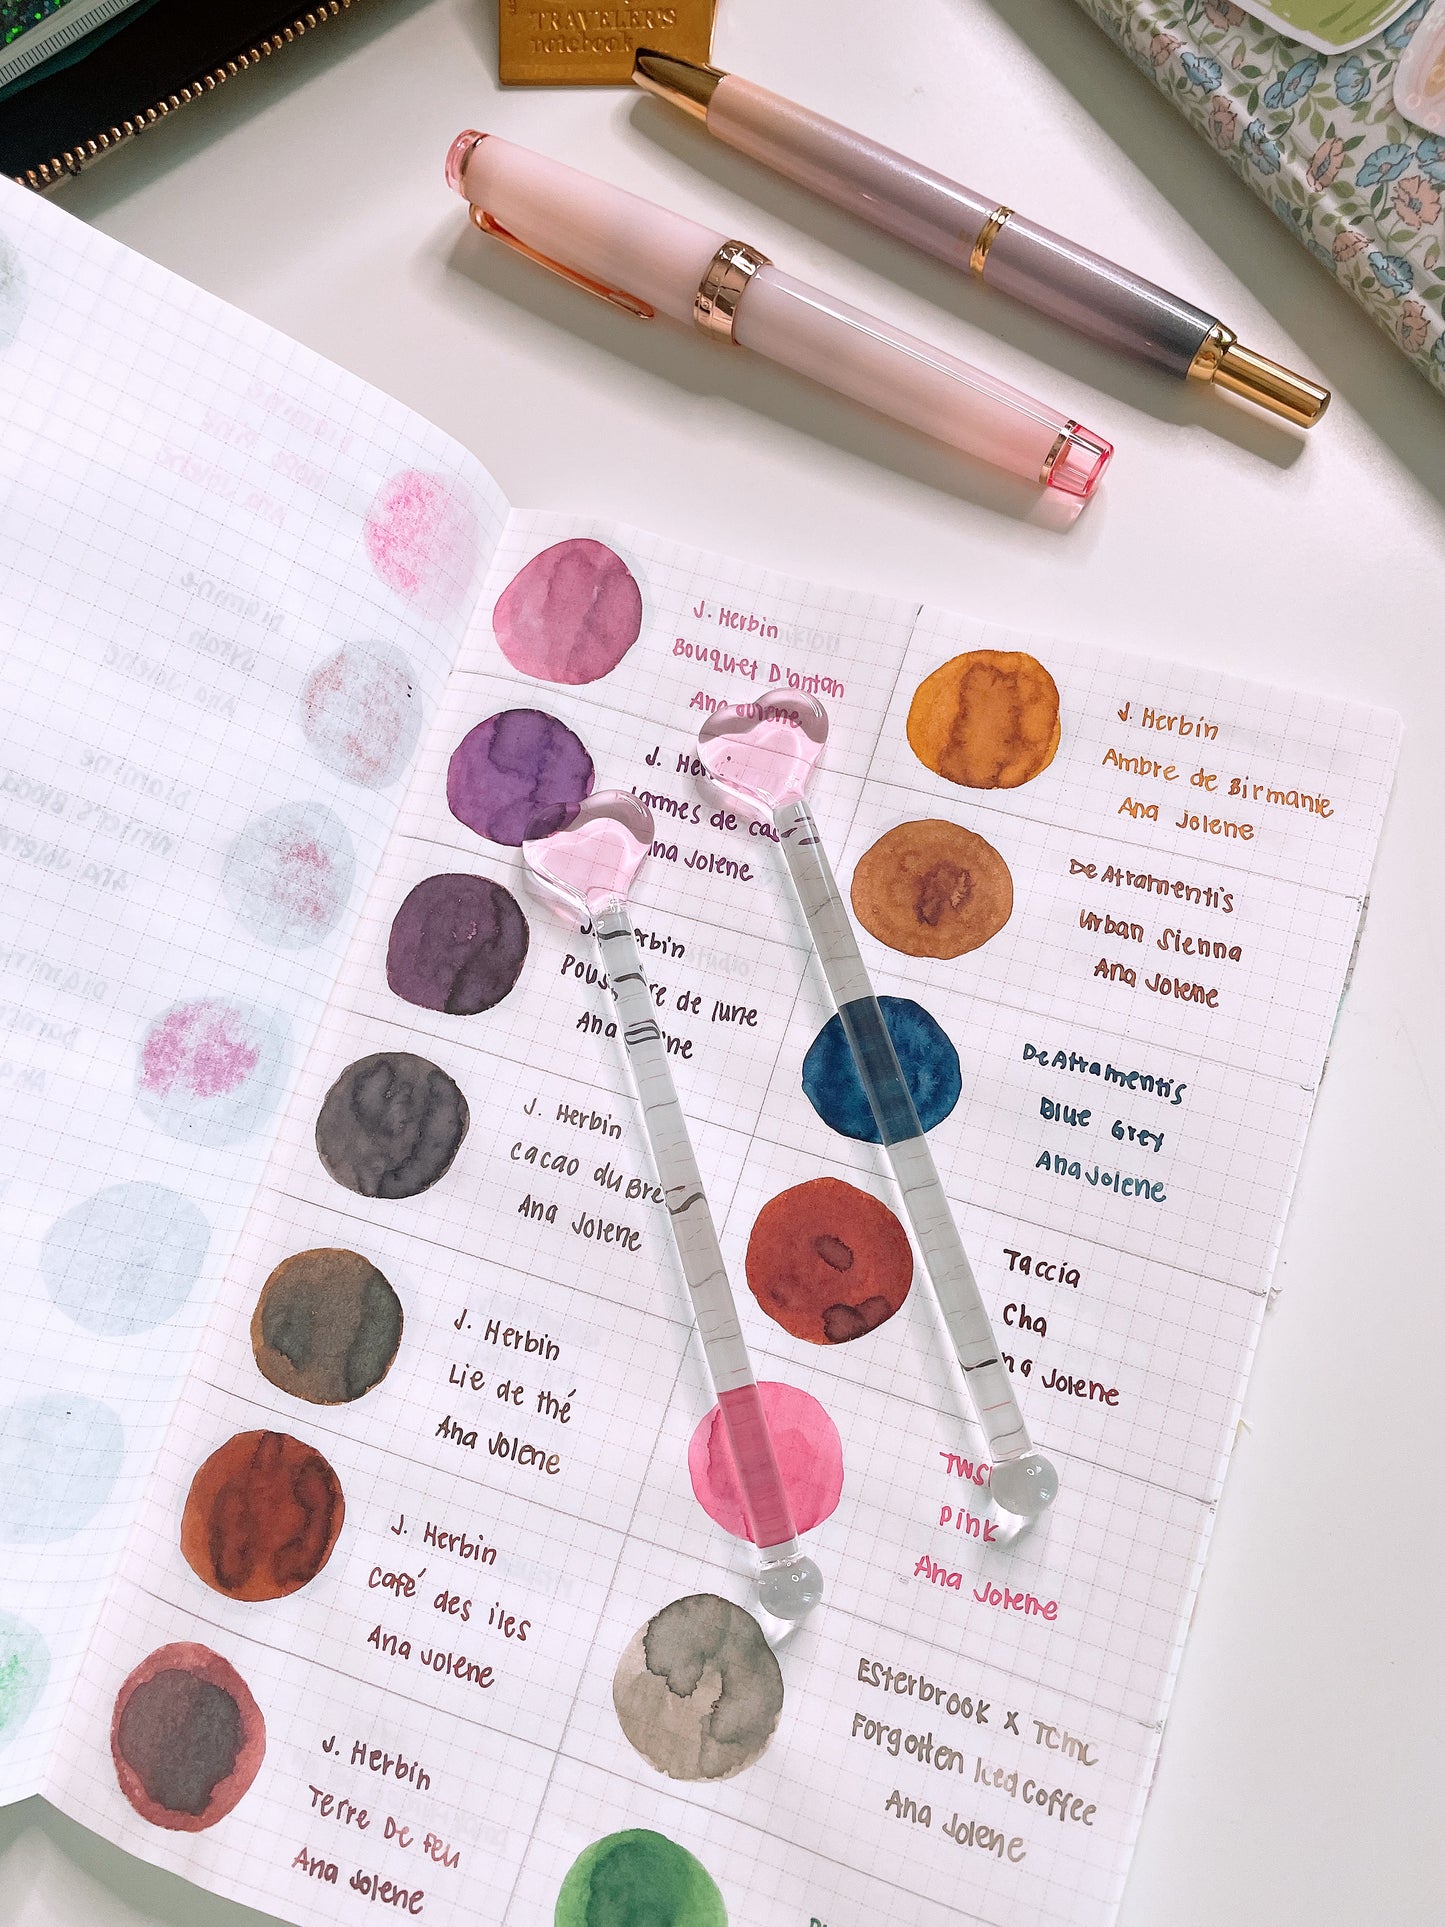 TRAVELER'S
notebook
J. Herbin
Bouquet D'antan
Ana Jolene
J. Her
larmes de cas
Ana Jolene
J. Herbin
Pouss re de lune
Ana ine
J. Herbin
cacao du Bre
Ana Jolene
J. Herbin
Lie de thé
Ana Jolene
J. Herbin
Café des iles
Ana Jolene
J. Herbin
Terre De Feu
Ana Jolene
J. Herbin
Ambre de Birmanie
Ana Jolene
De Atramentis
Urban Sienna
Ana Jolene
De Atramentis
Blue Grey
Ana Jolene
Taccia
Cha
na Jolene
TWS
Pink
Ana Jolene
Esterbrook x TCMC
Forgotten Iced Coffee
Ana Jolene